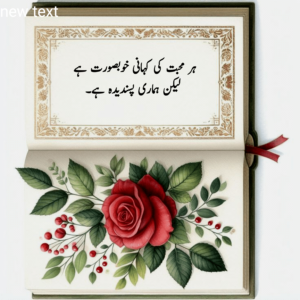 new text
ہر محبت کی کہانی خوبصورت ہے
لیکن ہماری پسندیدہ ہے۔